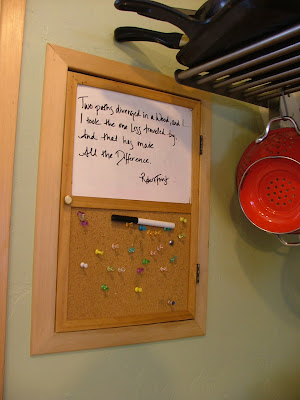 Two paths diverged in a wood, and I
I took the one less traveled by
And that has made
All the Difference.
Robert Frost